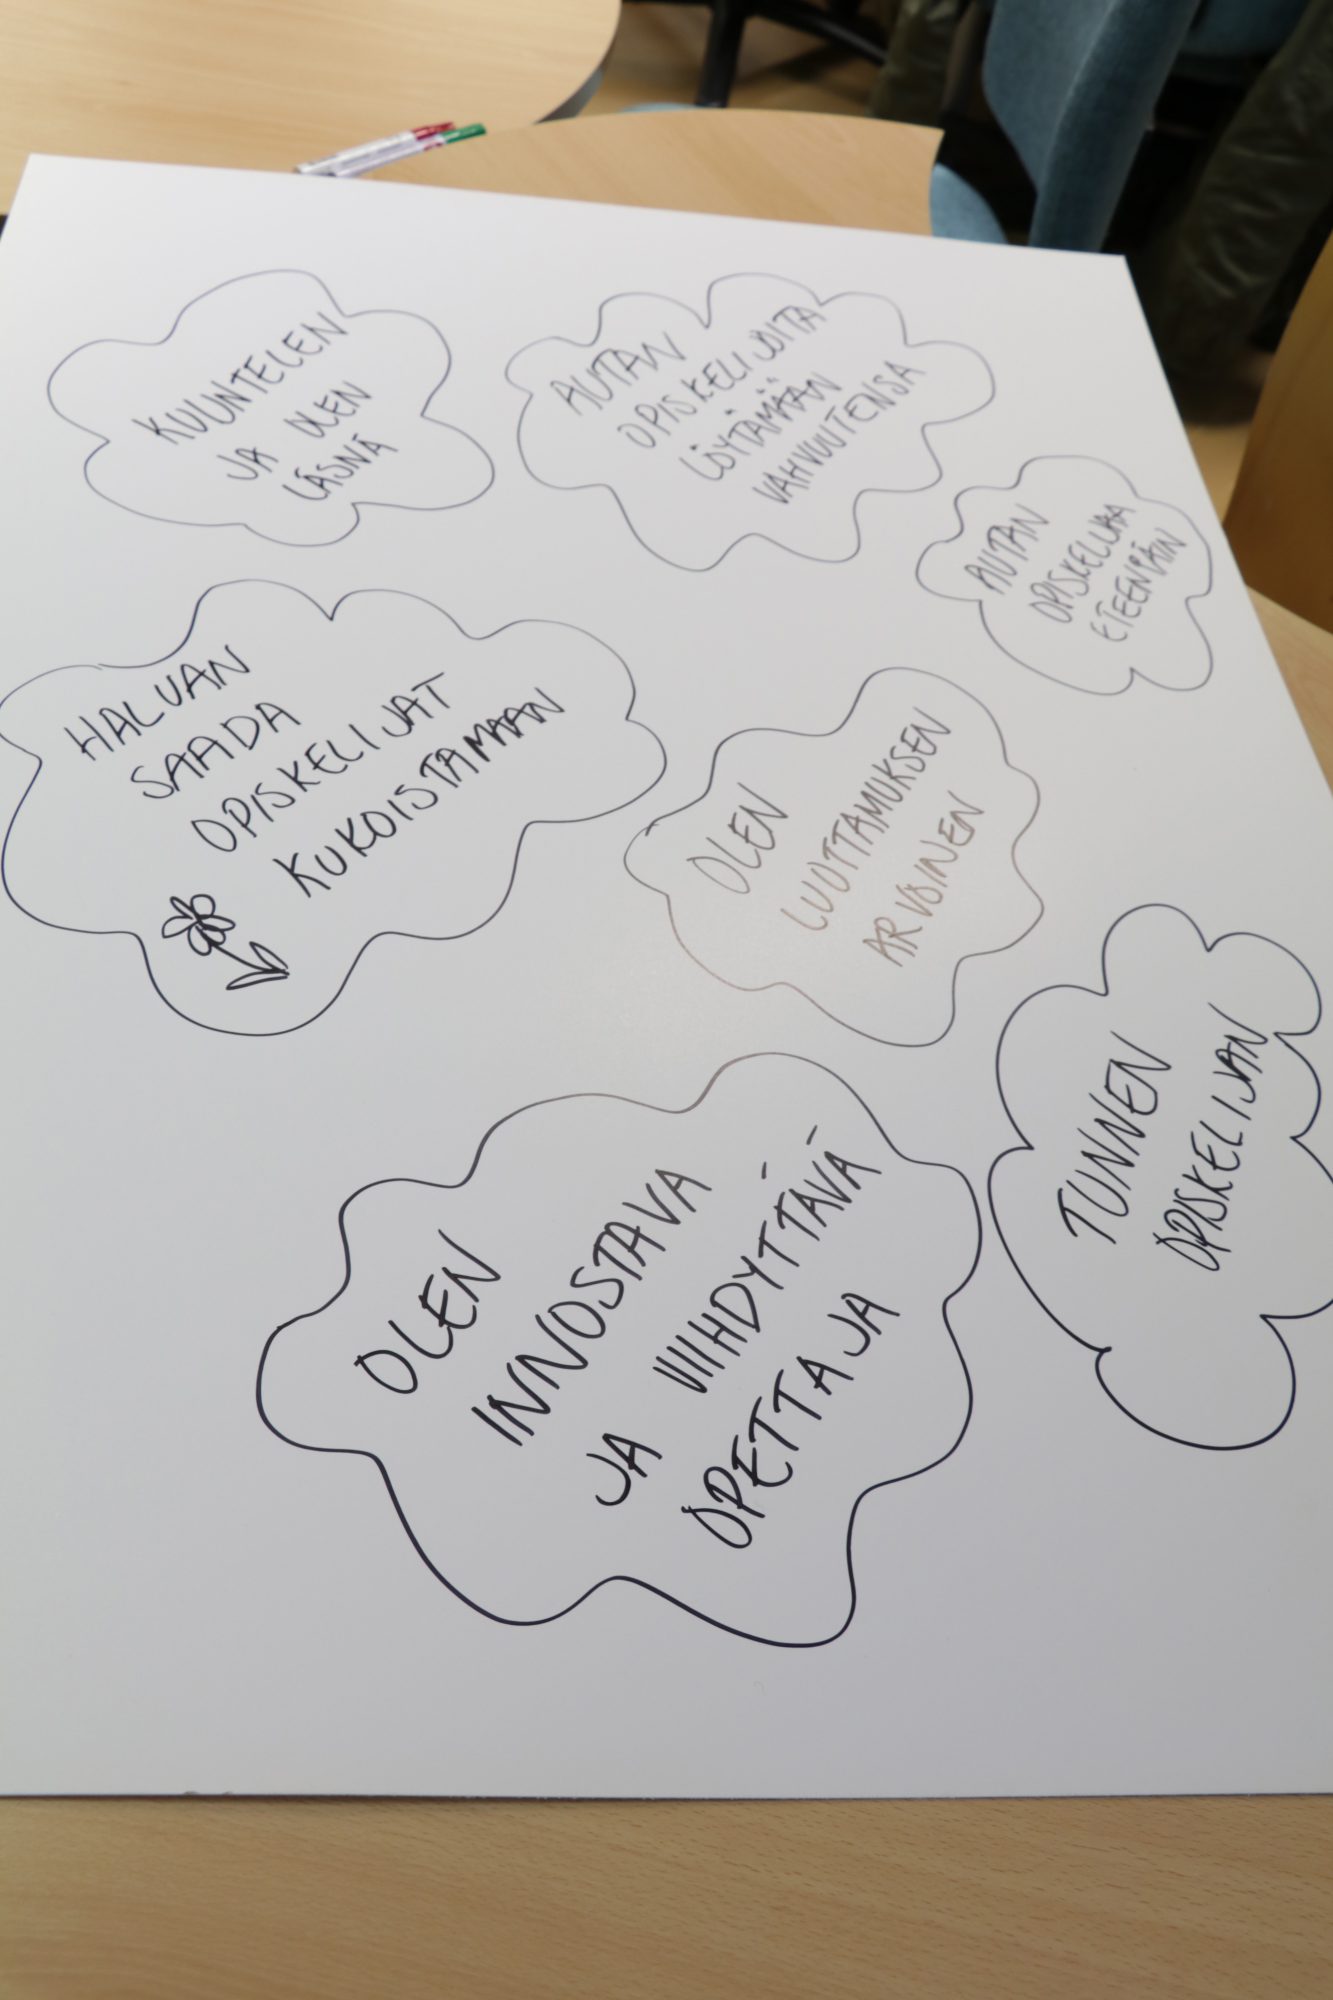 KUUNTELEN
JA OLEN
LÄSNÄ
AUTAN
OPISKELIJOITA
LÖYTÄMÄÄN
VAHVUUTENSA
AUTAN
OPISKELIJAA
ETEENPÄIN
HALUAN
SAADA
OPISKELIJAT
KUKOISTAMAAN
OLEN
LUOTTAMUKSEN
ARVOINEN
TUNNEN
OPISKELIJAN
OLEN
INNOSTAVA
JA VIIHDYTTÄVÄ
OPETTAJA